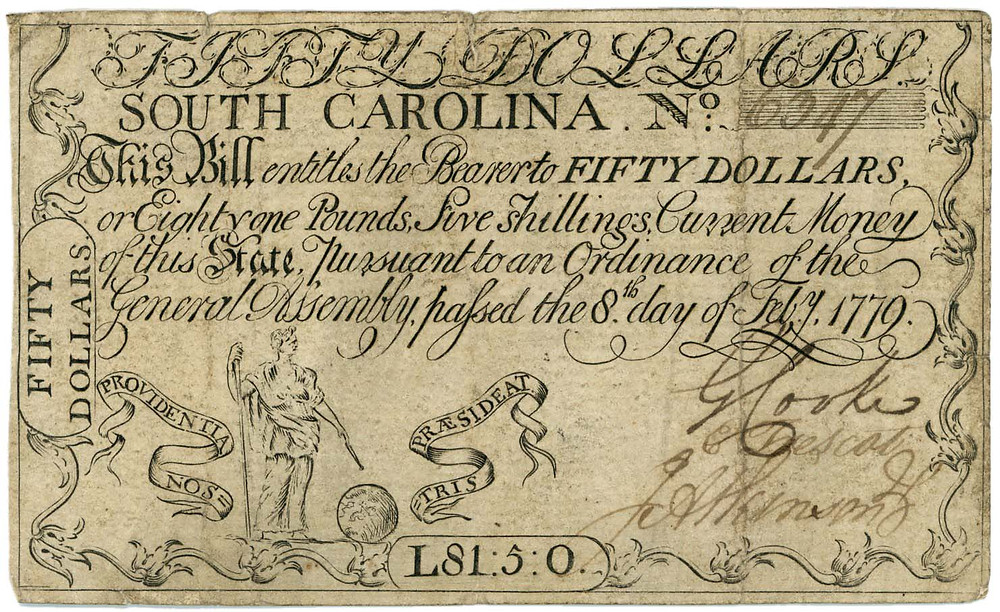 FIFTY DOLLARS
SOUTH CAROLINA. No. 6347
This Bill entitles the Bearer to FIFTY DOLLARS,
or Eighty one Pounds, Five Shillings, Current Money
of this State, Pursuant to an Ordinance of the
General Assembly, passed the 8.th day of Feb.y, 1779.
FIFTY
DOLLARS
PROVIDENTIA
NOS=
PRÆSIDEAT
TRIS
G Cooke
L81:5:0.